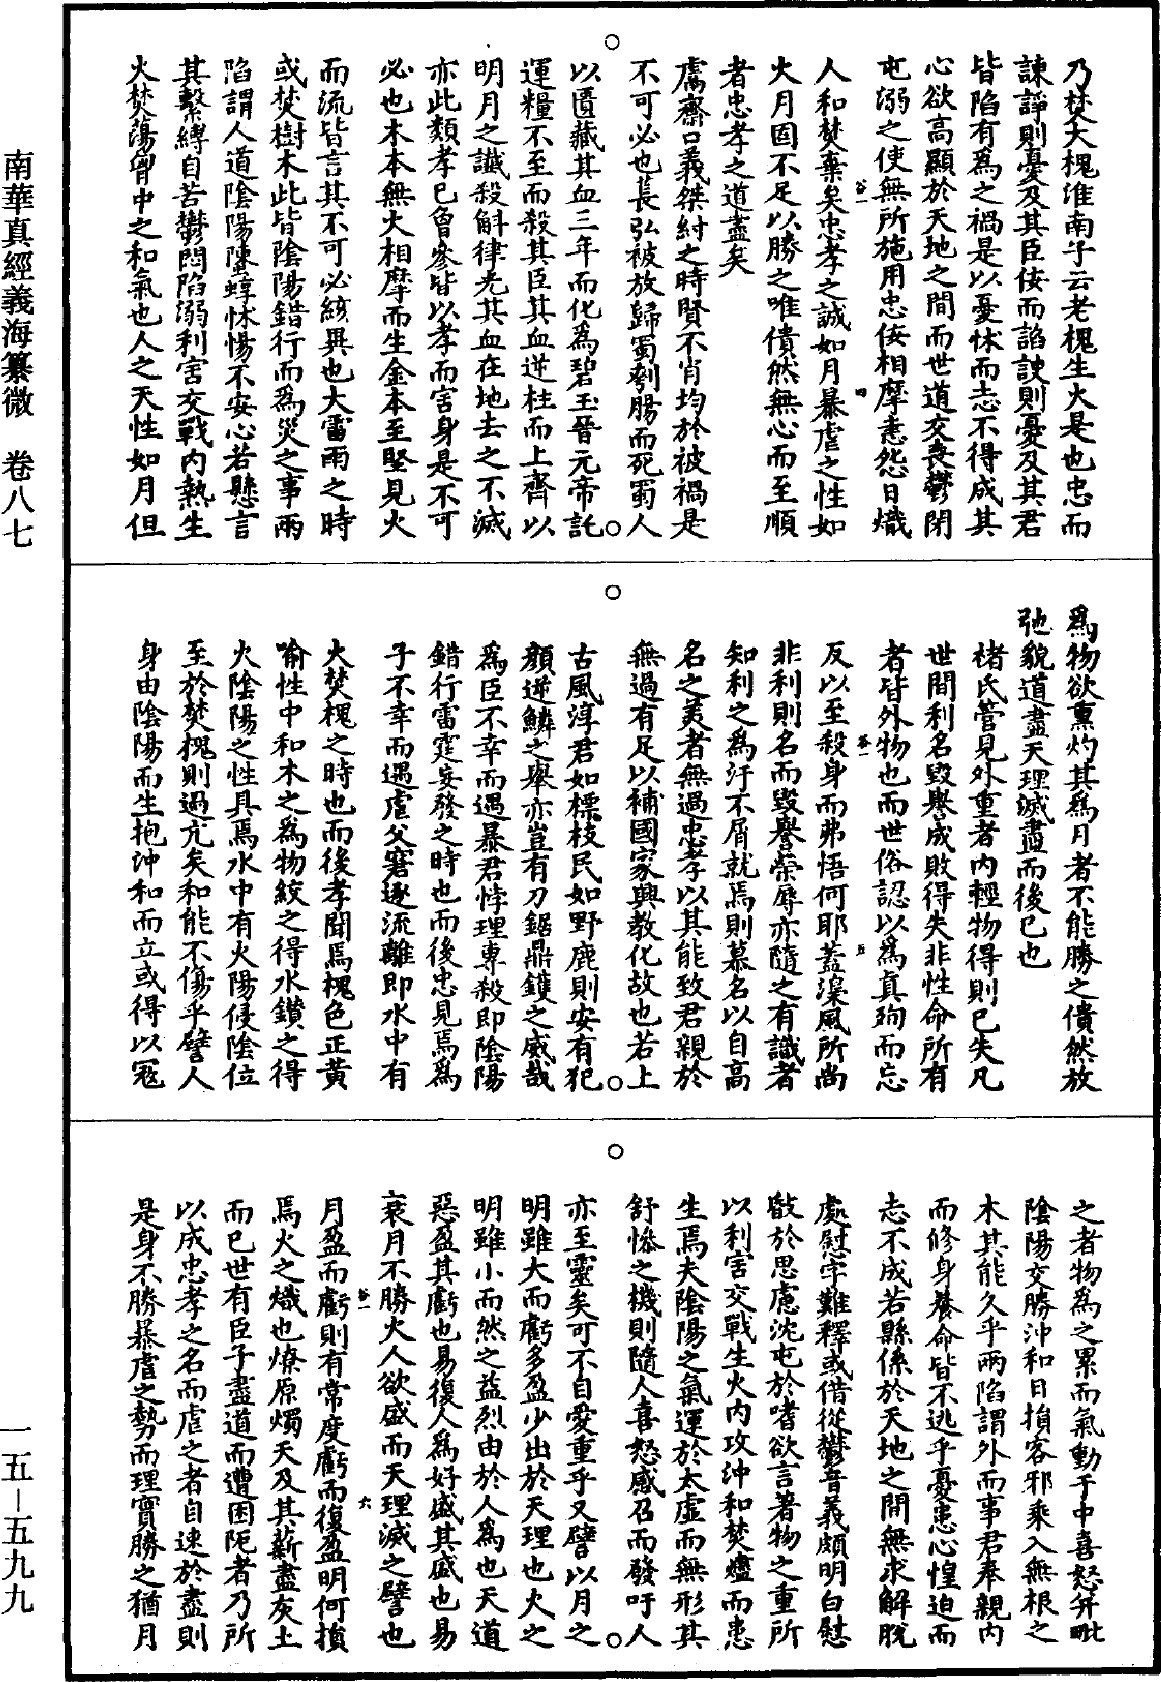 乃焚大槐淮南子云老槐生火是也忠而
諫諍則憂及其臣佞而諂諛則憂及其君
皆陷有為之禍是以憂怵而志不得成其
心欲高顯於天地之間而世道交喪鬱閉
屯溺之使無所施用忠佞相摩恚怨日熾
人和焚棄矣忠孝之誠如月暴虐之性如
火月固不足以勝之唯僓然無心而至順
者忠孝之道盡矣
鬳齋口義桀紂之時賢不肖均於被禍是
不可必也萇弘被放歸蜀刳腸而死蜀人
以匱藏其血三年而化為碧玉晉元帝託
運糧不至而殺其臣其血逆柱而上齊以
明月之讖殺斛律光其血在地去之不滅
亦此類孝已曾參皆以孝而害身是不可
必也木本無火相摩而生金本至堅見火
而流皆言其不可必絃異也大雷雨之時
或焚樹木此皆陰陽錯行而為災之事兩
陷謂人道陰陽螴蜳怵惕不安心若懸言
其繫縛自苦鬱悶陷溺利害交戰內熱生
火焚蕩胷中之和氣也人之天性如月但
為物欲熏灼其為月者不能勝之僓然放
弛貌道盡天理滅盡而後已也
褚氏管見外重者內輕物得則己失凡
世間利名毀譽成敗得失非性命所有
者皆外物也而世俗認以為真殉而忘
反以至殺身而弗悟何耶蓋澡風所尚
非利則名而毀譽榮辱亦隨之有識者
知利之為汙不屑就焉則慕名以自高
名之美者無過忠孝以其能致君親於
無過有足以補國家興教化故也若上
古風淳君如標枝民如野鹿則安有犯
顏逆鱗之舉亦豈有刀鋸鼎鑊之威哉
為臣不幸而遇暴君悖理專殺即陰陽
錯行雷霆妄發之時也而後忠見焉為
子不幸而遇虐父窘逐流離即水中有
火焚槐之時也而後孝聞焉槐色正黃
喻性中和木之為物絞之得水鑽之得
火陰陽之性具焉水中有火陽侵陰位
至於焚槐則過亢矣和能不傷乎譬人
身由陰陽而生抱沖和而立或得以冦
之者物為之累而氣動于中喜怒并毗
陰陽交勝沖和日損客邪乘入無根之
木其能久乎兩陷謂外而事君奉親內
而修身養命皆不逃乎憂患心惶迫而
志不成若縣係於天地之間無求解脫
處慰字難釋或借從鬱音義頗明白慰
㪣於思慮沈屯於嗜欲言著物之重所
以利害交戰生火內攻沖和焚爐而患
生焉夫陰陽之氣運於太虛而無形其
舒慘之機則隨人喜怒感召而發吁人
亦至靈矣可不自愛重乎又譬以月之
明雖大而虧多盈少出於天理也火之
明雖小而然之益烈由於人為也天道
惡盈其虧也易復人為好盛其盛也易
衰月不勝火人欲盛而天理滅之譬也
月盈而虧則有常度虧而復盈明何損
焉火之熾也燎原燭天及其薪盡灰土
而已世有臣子盡道而遭困阨者乃所
以成忠孝之名而虐之者自速於盡則
是身不勝暴虐之勢而理實勝之猶月
南華真經義海纂微 卷八七
一五－五九九